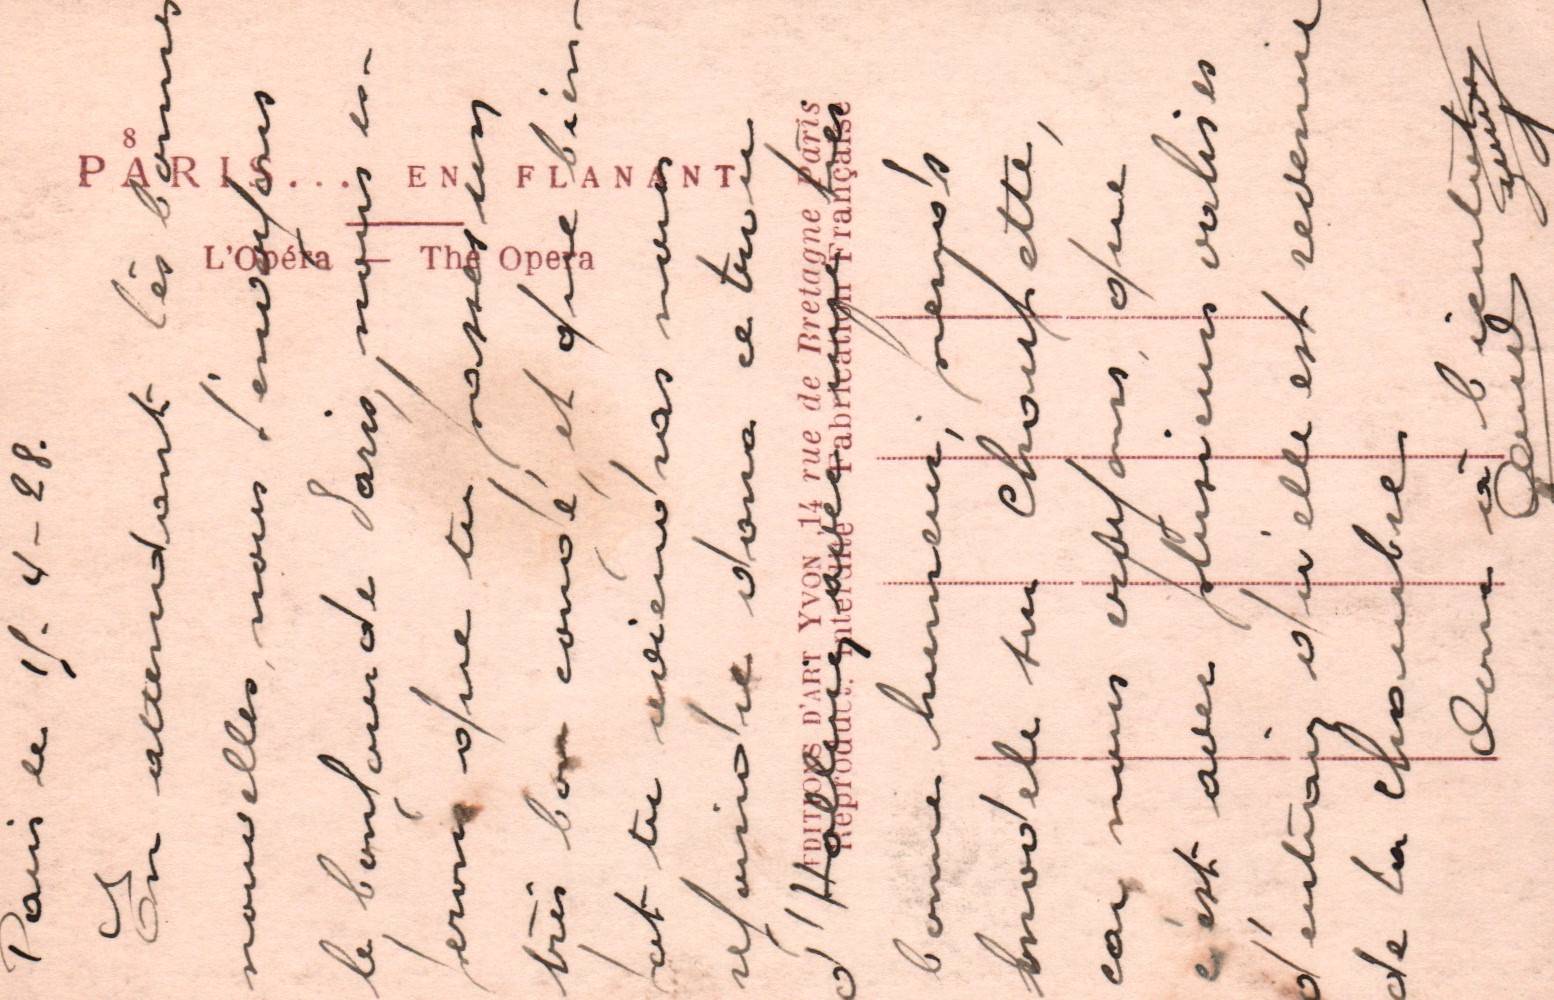 8
PARIS... EN FLANANT
L'Opéra — The Opera
EDITIONS D'ART YVON 14 rue de Bretagne Paris
Reproduct. Interdite Fabrication Française
Paris le 15-4-28.
En attendant tes bonnes
nouvelles, nous t'envoyons
le bonjour de Paris, nous es-
perons que tu passes un
très bon congé, et que bien-
tot tu viendras nous
rejoindre dans ce trou
d'Hollerich avec une très
bonne humeur, prends
modele tu Chouchette,
car nous esperons que
c'est avec plusieurs valises
d'entrain qu'elle est revenue
de la
Donc à bientot